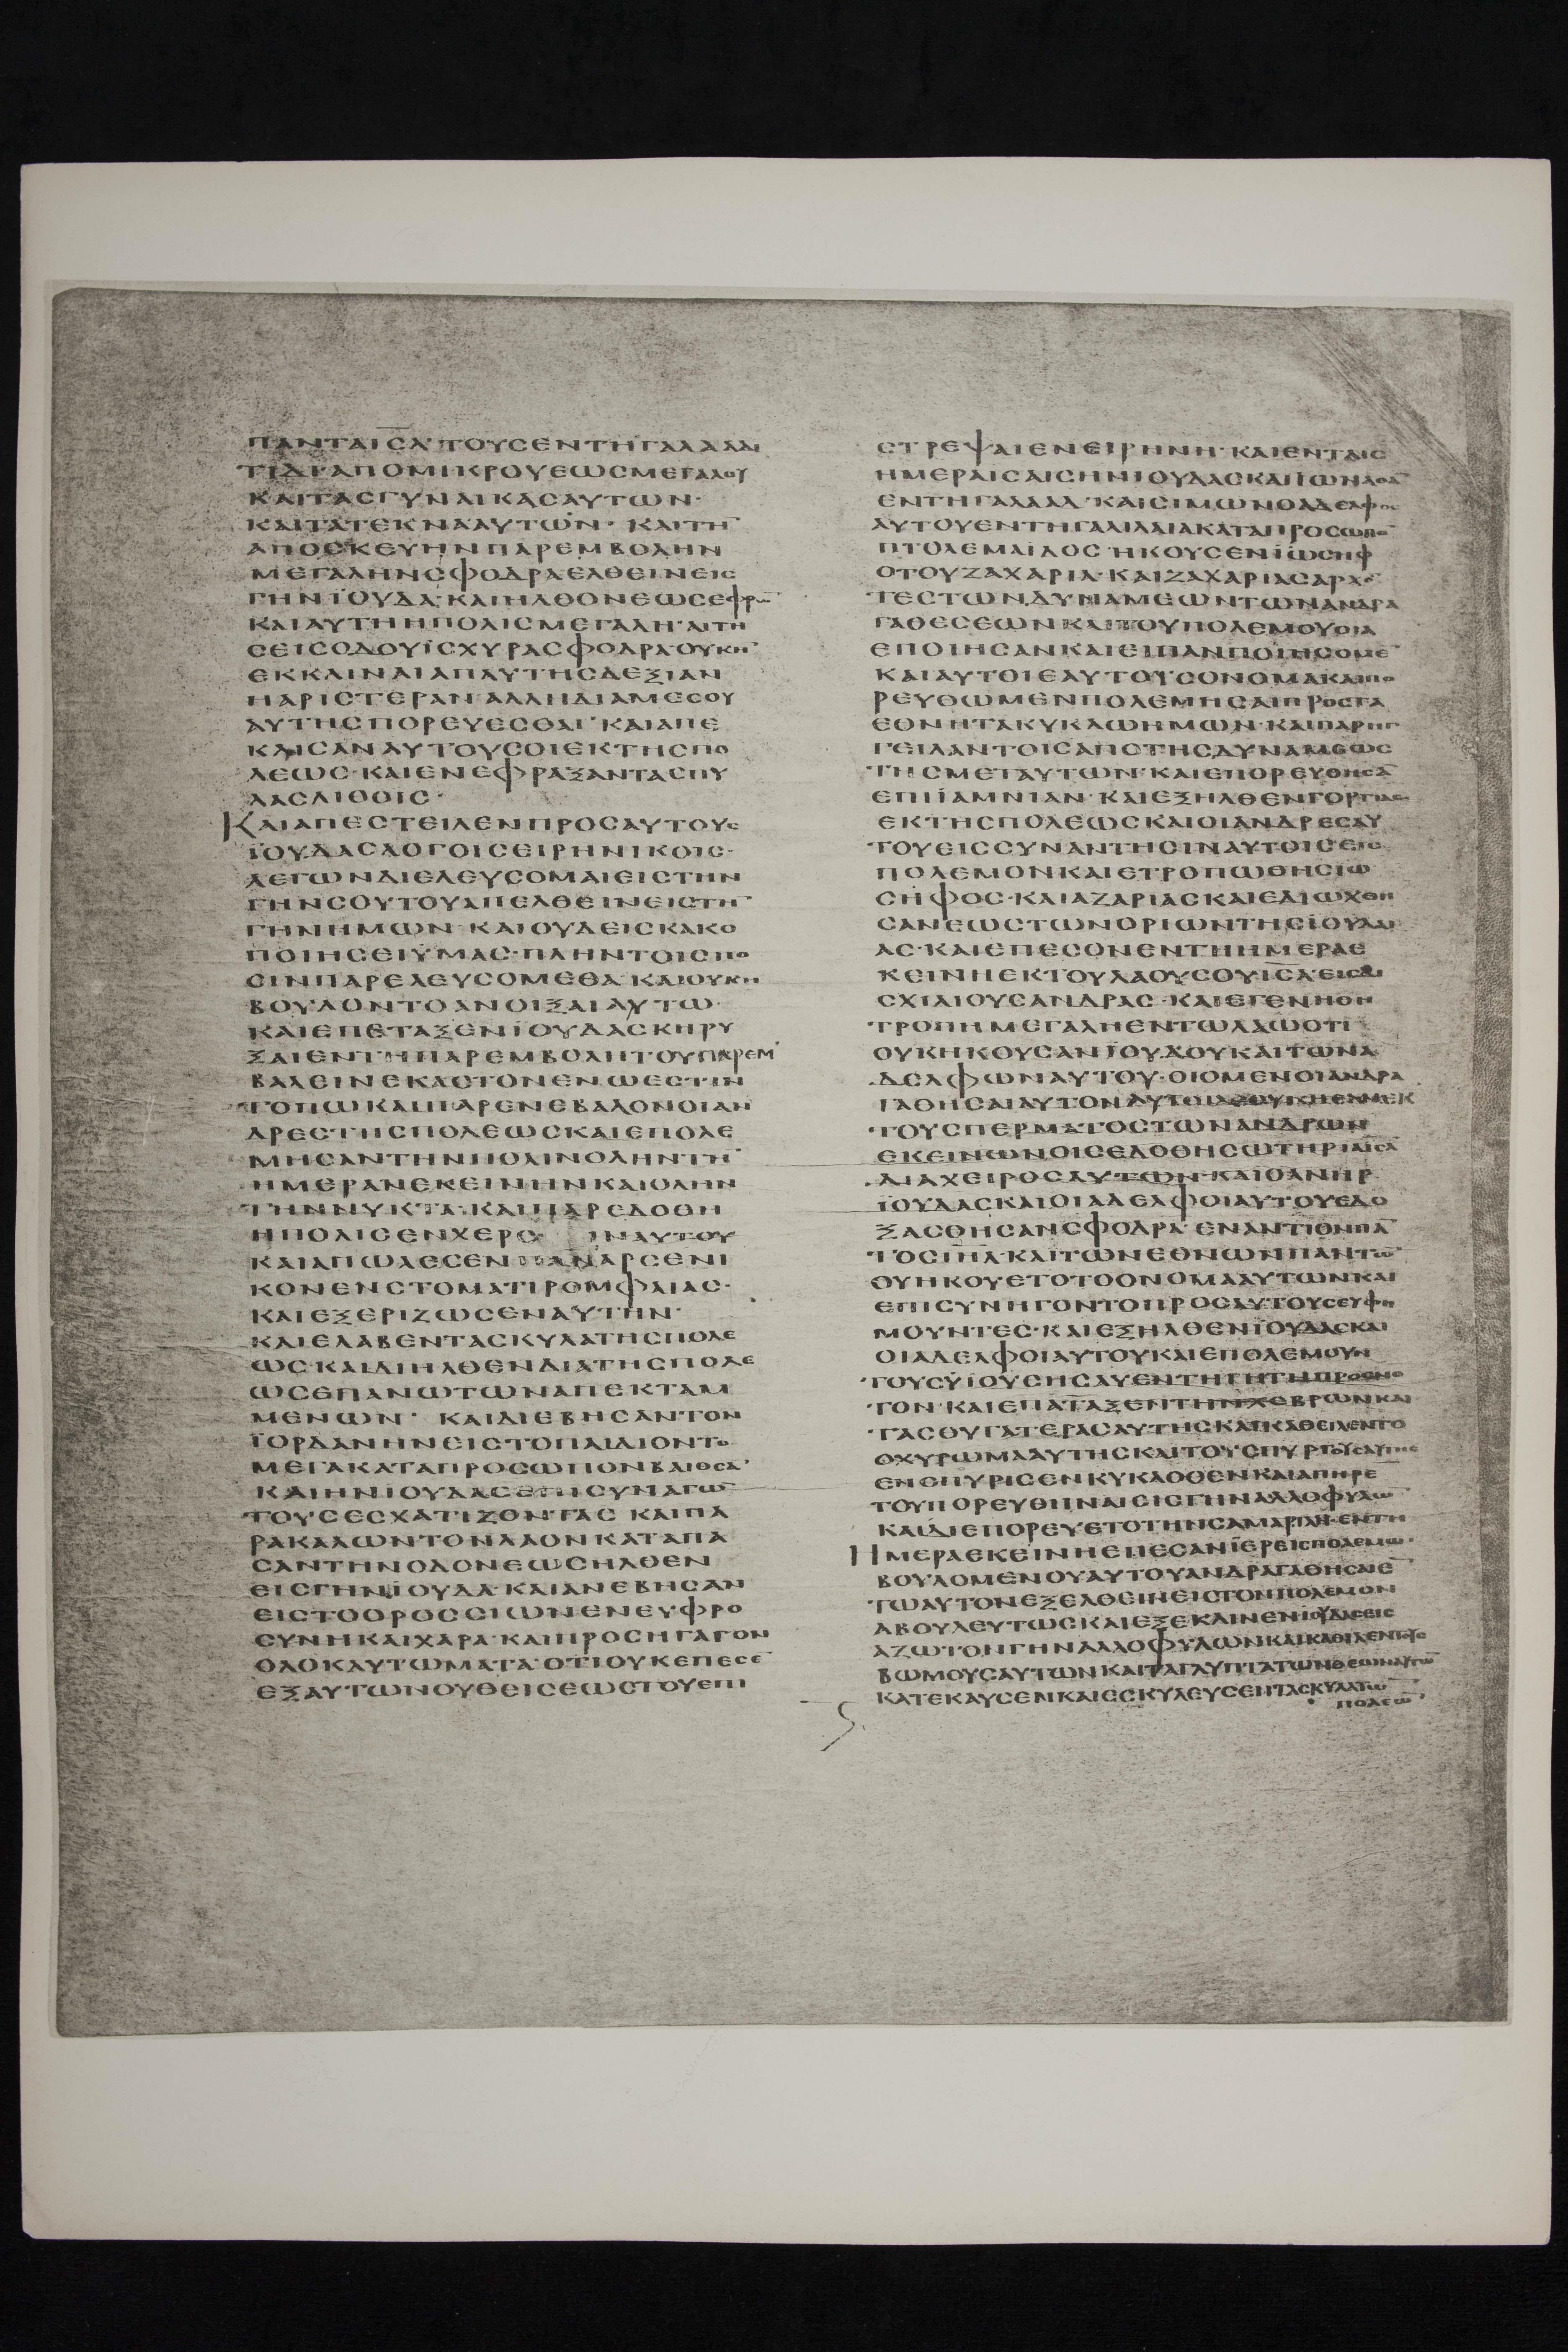 ΠΑΝΤΑΙΣ̅Λ̅ ΤΟΥΣΕΝΤΗΓΑΛΑΑΔΙ
ΤΙΔΙΑΠΟΜΙΚΡΟΥΕΩΣΜΕΓΑΛΟΥ
ΚΑΙΤΑΣΓΥΝΑΙΚΑΣΑΥΤΩΝ·
ΚΑΙΤΑΤΕΚΝΑΑΥΤΩΝ· ΚΑΙΤΗ̅
ΑΠΟΣΚΕΥΗΝΠΑΡΕΜΒΟΛΗΝ
ΜΕΓΑΛΗΝΣΦΟΔΡΑΕΛΘΕΙΝΕΙΣ
ΓΗΝΪΟΥΔΑ·ΚΑΙΗΛΘΟΝΕΩΣΕΦΡΩ̅
ΚΑΙΑΥΤΗΗΠΟΛΙΣΜΕΓΑΛΗ·ΑΙΤΗ
ΣΕΙΣΟΔΟΥΪΣΧΥΡΑΣΦΟΔΡΑ·ΟΥΚΗ̅
ΕΚΚΛΙΝΑΙΑΠΑΥΤΗΣΔΕΞΙΑΝ
ΗΑΡΙΣΤΕΡΑΝ·ΑΛΛΗΔΙΑΜΕΣΟΥ
ΑΥΤΗΣΠΟΡΕΥΕΣΘΑΙ·ΚΑΙΑΠΕ
ΚΛΙΣΑΝΑΥΤΟΥΣΟΙΕΚΤΗΣΠΟ
ΛΕΩΣ·ΚΑΙΕΝΕΦΡΑΞΑΝΤΑΣΠΥ
ΛΑΣΛΙΘΟΙΣ·
ΚΑΙΑΠΕΣΤΕΙΛΕΝΠΡΟΣΑΥΤΟΥΣ
ΪΟΥΔΑΣΛΟΓΟΙΣΕΙΡΗΝΙΚΟΙΣ·
ΛΕΓΩΝΔΙΕΛΕΥΣΟΜΑΙΕΙΣΤΗΝ
ΓΗΝΣΟΥΤΟΥΑΠΕΛΘΕΙΝΕΙΣΤΗ̅
ΓΗΝΗΜΩΝ·ΚΑΙΟΥΔΕΙΣΚΑΚΟ
ΠΟΙΗΣΕΙΫΜΑΣ·ΠΛΗΝΤΟΙΣΠΟ
ΣΙΝΠΑΡΕΛΕΥΣΟΜΕΘΑ·ΚΑΙΟΥΚΗ
ΒΟΥΛΟΝΤΟΑΝΟΙΞΑΙΑΥΤΩ·
ΚΑΙΕΠΕΤΑΞΕΝΪΟΥΔΑΣΚΗΡΥ
ΞΑΙΕΝΤΗΠΑΡΕΜΒΟΛΗΤΟΥΠΑΡΕΜ
ΒΑΛΕΙΝΕΚΑΣΤΟΝΕΝΩΕΣΤΙΝ
ΤΟΠΩΚΑΙΠΑΡΕΝΕΒΑΛΟΝΟΙΑΝ
ΔΡΕΣΤΗΣΠΟΛΕΩΣΚΑΙΕΠΟΛΕ
ΜΗΣΑΝΤΗΝΠΟΛΙΝΟΛΗΝΤΗ̅
ΗΜΕΡΑΝΕΚΕΙΝΗΝΚΑΙΟΛΗΝ
ΤΗΝΝΥΚΤΑ·ΚΑΙΠΑΡΕΔΟΘΗ
ΗΠΟΛΙΣΕΝΧΕΡΣΙΝΑΥΤΟΥ
ΚΑΙΑΠΩΛΕΣΕΝΠΑΝΑΡΣΕΝΙ
ΚΟΝΕΝΣΤΟΜΑΤΙΡΟΜΦΑΙΑΣ·
ΚΑΙΕΞΕΡΙΖΩΣΕΝΑΥΤΗΝ·
ΚΑΙΕΛΑΒΕΝΤΑΣΚΥΛΑΤΗΣΠΟΛΕ
ΩΣ·ΚΑΙΔΙΗΛΘΕΝΔΙΑΤΗΣΠΟΛΕ
ΩΣΕΠΑΝΩΤΩΝΑΠΕΚΤΑΜ
ΜΕΝΩΝ· ΚΑΙΔΙΕΒΗΣΑΝΤΟΝ
ΪΟΡΔΑΝΗΝΕΙΣΤΟΠΑΙΔΙΟΝΤΟ
ΜΕΓΑΚΑΤΑΠΡΟΣΩΠΟΝΒΑΙΘΣΑ̅
ΚΑΙΗΝΙΟΥΔΑΣΕΠΙΣΥΝΑΓΩ̅
ΤΟΥΣΕΣΧΑΤΙΖΟΝΤΑΣ ΚΑΙΠΑ
ΡΑΚΑΛΩΝΤΟΝΛΑΟΝΚΑΤΑΠΑ
ΣΑΝΤΗΝΟΔΟΝΕΩΣΗΛΘΕΝ
ΕΙΣΓΗΝΪΟΥΔΑ·ΚΑΙΑΝΕΒΗΣΑΝ
ΕΙΣΤΟΟΡΟΣΣΙΩΝΕΝΕΥΦΡΟ
ΣΥΝΗΚΑΙΧΑΡΑ·ΚΑΙΠΡΟΣΗΓΑΓΟΝ
ΟΛΟΚΑΥΤΩΜΑΤΑ·ΟΤΙΟΥΚΕΠΕΣΕ̅
ΕΞΑΥΤΩΝΟΥΘΕΙΣΕΩΣΤΟΥΕΠΙ
ΣΤΡΕΨΑΙΕΝΕΙΡΗΝΗ·ΚΑΙΕΝΤΑΙΣ
ΗΜΕΡΑΙΣΑΙΣΗΝΙΟΥΔΑΣΚΑΙΪΩΝΑΘΑ̅
ΕΝΤΗΓΑΛΑΑΔ·ΚΑΙΣΙΜΩΝΟΑΔΕΛΦΟΣ
ΑΥΤΟΥΕΝΤΗΓΑΛΙΛΑΙΑΚΑΤΑΠΡΟΣΩΠΟ̅
ΠΤΟΛΕΜΑΪΔΟΣ·ΗΚΟΥΣΕΝΪΩΣΗΦ
ΟΤΟΥΖΑΧΑΡΙΑ·ΚΑΙΖΑΧΑΡΙΑΣΑΡΧΟ̅
ΤΕΣΤΩΝΔΥΝΑΜΕΩΝΤΩΝΑΝΔΡΑ
ΓΑΘΕΣΕΩΝΚΑΙΤΟΥΠΟΛΕΜΟΥΟΙΑ
ΕΠΟΙΗΣΑΝΚΑΙΕΙΠΑΝΠΟΙΗΣΟΜΕ̅
ΚΑΙΑΥΤΟΙΕΑΥΤΟΙΣΟΝΟΜΑΚΑΙΠΟ
ΡΕΥΘΩΜΕΝΠΟΛΕΜΗΣΑΙΠΡΟΣΤΑ
ΕΘΝΗΤΑΚΥΚΛΩΗΜΩΝ·ΚΑΙΠΑΡΗΓ
ΓΕΙΛΑΝΤΟΙΣΑΠΟΤΗΣΔΥΝΑΜΕΩΣ
ΤΗΣΜΕΤΑΥΤΩΝ·ΚΑΙΕΠΟΡΕΥΘΗΣΑ̅
ΕΠΙΪΑΜΝΙΑΝ·ΚΑΙΕΞΗΛΘΕΝΓΟΡΓΙΑΣ
ΕΚΤΗΣΠΟΛΕΩΣΚΑΙΟΙΑΝΔΡΕΣΑΥ
ΤΟΥΕΙΣΣΥΝΑΝΤΗΣΙΝΑΥΤΟΙΣΕΙΣ
ΠΟΛΕΜΟΝΚΑΙΕΤΡΟΠΩΘΗΣΪΩ
ΣΗΦΟΣ·ΚΑΙΑΖΑΡΙΑΣΚΑΙΕΔΙΩΧΘΗ
ΣΑΝΕΩΣΤΩΝΟΡΙΩΝΤΗΣΪΟΥΔΑΙ
ΑΣ·ΚΑΙΕΠΕΣΟΝΕΝΤΗΗΜΕΡΑΕ
ΚΕΙΝΗΕΚΤΟΥΛΑΟΥΣΟΥΙΣ̅Λ̅ΕΙΣΔΙ
ΣΧΙΛΙΟΥΣΑΝΔΡΑΣ·ΚΑΙΕΓΕΝΗΘΗ
ΤΡΟΠΗΜΕΓΑΛΗΕΝΤΩΛΑΩΟΤΙ
ΟΥΚΗΚΟΥΣΑΝΪΟΥΔΟΥΚΑΙΤΩΝΑ
ΔΕΛΦΩΝΑΥΤΟΥ·ΟΙΟΜΕΝΟΙΑΝΔΡΑ
ΤΟΥΣΠΕΡΜΑΤΟΣΤΩΝΑΝΔΡΩΝ
ΕΚΕΙΝΩΝΟΙΣΕΔΟΘΗΣΩΤΗΡΙΑΙΣ̅Λ̅
ΔΙΑΧΕΙΡΟΣΑΥΤΩΝ·ΚΑΙΟΑΝΗΡ
ΪΟΥΔΑΣΚΑΙΟΙΑΔΕΛΦΟΙΑΥΤΟΥΕΔΟ
ΞΑΣΘΗΣΑΝΣΦΟΔΡΑ·ΕΝΑΝΤΙΟΝΠΑ̅
ΤΟΣΙΗ̅Λ̅·ΚΑΙΤΩΝΕΘΝΩΝΠΑΝΤΩ̅
ΟΥΗΚΟΥΕΤΟΤΟΟΝΟΜΑΑΥΤΩΝΚΑΙ
ΕΠΙΣΥΝΗΓΟΝΤΟΠΡΟΣΑΥΤΟΥΣΕΥΦΗ
ΜΟΥΝΤΕΣ·ΚΑΙΕΞΗΛΘΕΝΪΟΥΔΑΣΚΑΙ
ΟΙΑΔΕΛΦΟΙΑΥΤΟΥΚΑΙΕΠΟΛΕΜΟΥΝ
ΤΟΥΣΫΙΟΥΣΗΣΑΥΕΝΤΗΓΗΤΗΠΡΟΣΝΟ
ΤΟΝ·ΚΑΙΕΠΑΤΑΞΕΝΤΗΝΧΕΒΡΩΝΚΑΙ
ΤΑΣΟΥΓΑΤΕΡΑΣΑΥΤΗΣΚΑΙΚΑΘΕΙΛΕΝΤΟ
ΟΧΥΡΩΜΑΑΥΤΗΣΚΑΙΤΟΥΣΠΥΡΓΟΥΣΑΥΤΗΣ
ΕΝΕΠΥΡΙΣΕΝΚΥΚΛΟΘΕΝΚΑΙΑΠΗΡΕ̅
ΤΟΥΠΟΡΕΥΘΗΝΑΙΕΙΣΓΗΝΑΛΛΟΦΥΛΩ̅
ΚΑΙΔΙΕΠΟΡΕΥΕΤΟΤΗΝΣΑΜΑΡΙΑΝ·ΕΝΤΗ
ΗΜΕΡΑΕΚΕΙΝΗΕΠΕΣΑΝΪΕΡΕΙΣΠΟΛΕΜΩ·
ΒΟΥΛΟΜΕΝΟΥΑΥΤΟΥΑΝΔΡΑΓΑΘΗΣΑΙΕ̅
ΤΩΑΥΤΟΝΕΞΕΛΘΕΙΝΕΙΣΤΟΝΠΟΛΕΜΟΝ
ΑΒΟΥΛΕΥΤΩΣΚΑΙΕΞΕΚΛΙΝΕΝΙΟΥΔΑΣΕΙΣ
ΑΖΩΤΟΝΓΗΝΑΛΛΟΦΥΛΩΝΚΑΙΚΑΘΕΙΛΕΝΤΟΥΣ
ΒΩΜΟΥΣΑΥΤΩΝΚΑΙΤΑΓΛΥΠΤΑΤΩΝΘΕΩΝΑΥΤΩ̅
ΚΑΤΕΚΑΥΣΕΝΚΑΙΕΣΚΥΛΕΥΣΕΝΤΑΣΚΥΛΑΤΩ̅
ΠΟΛΕΩ̅